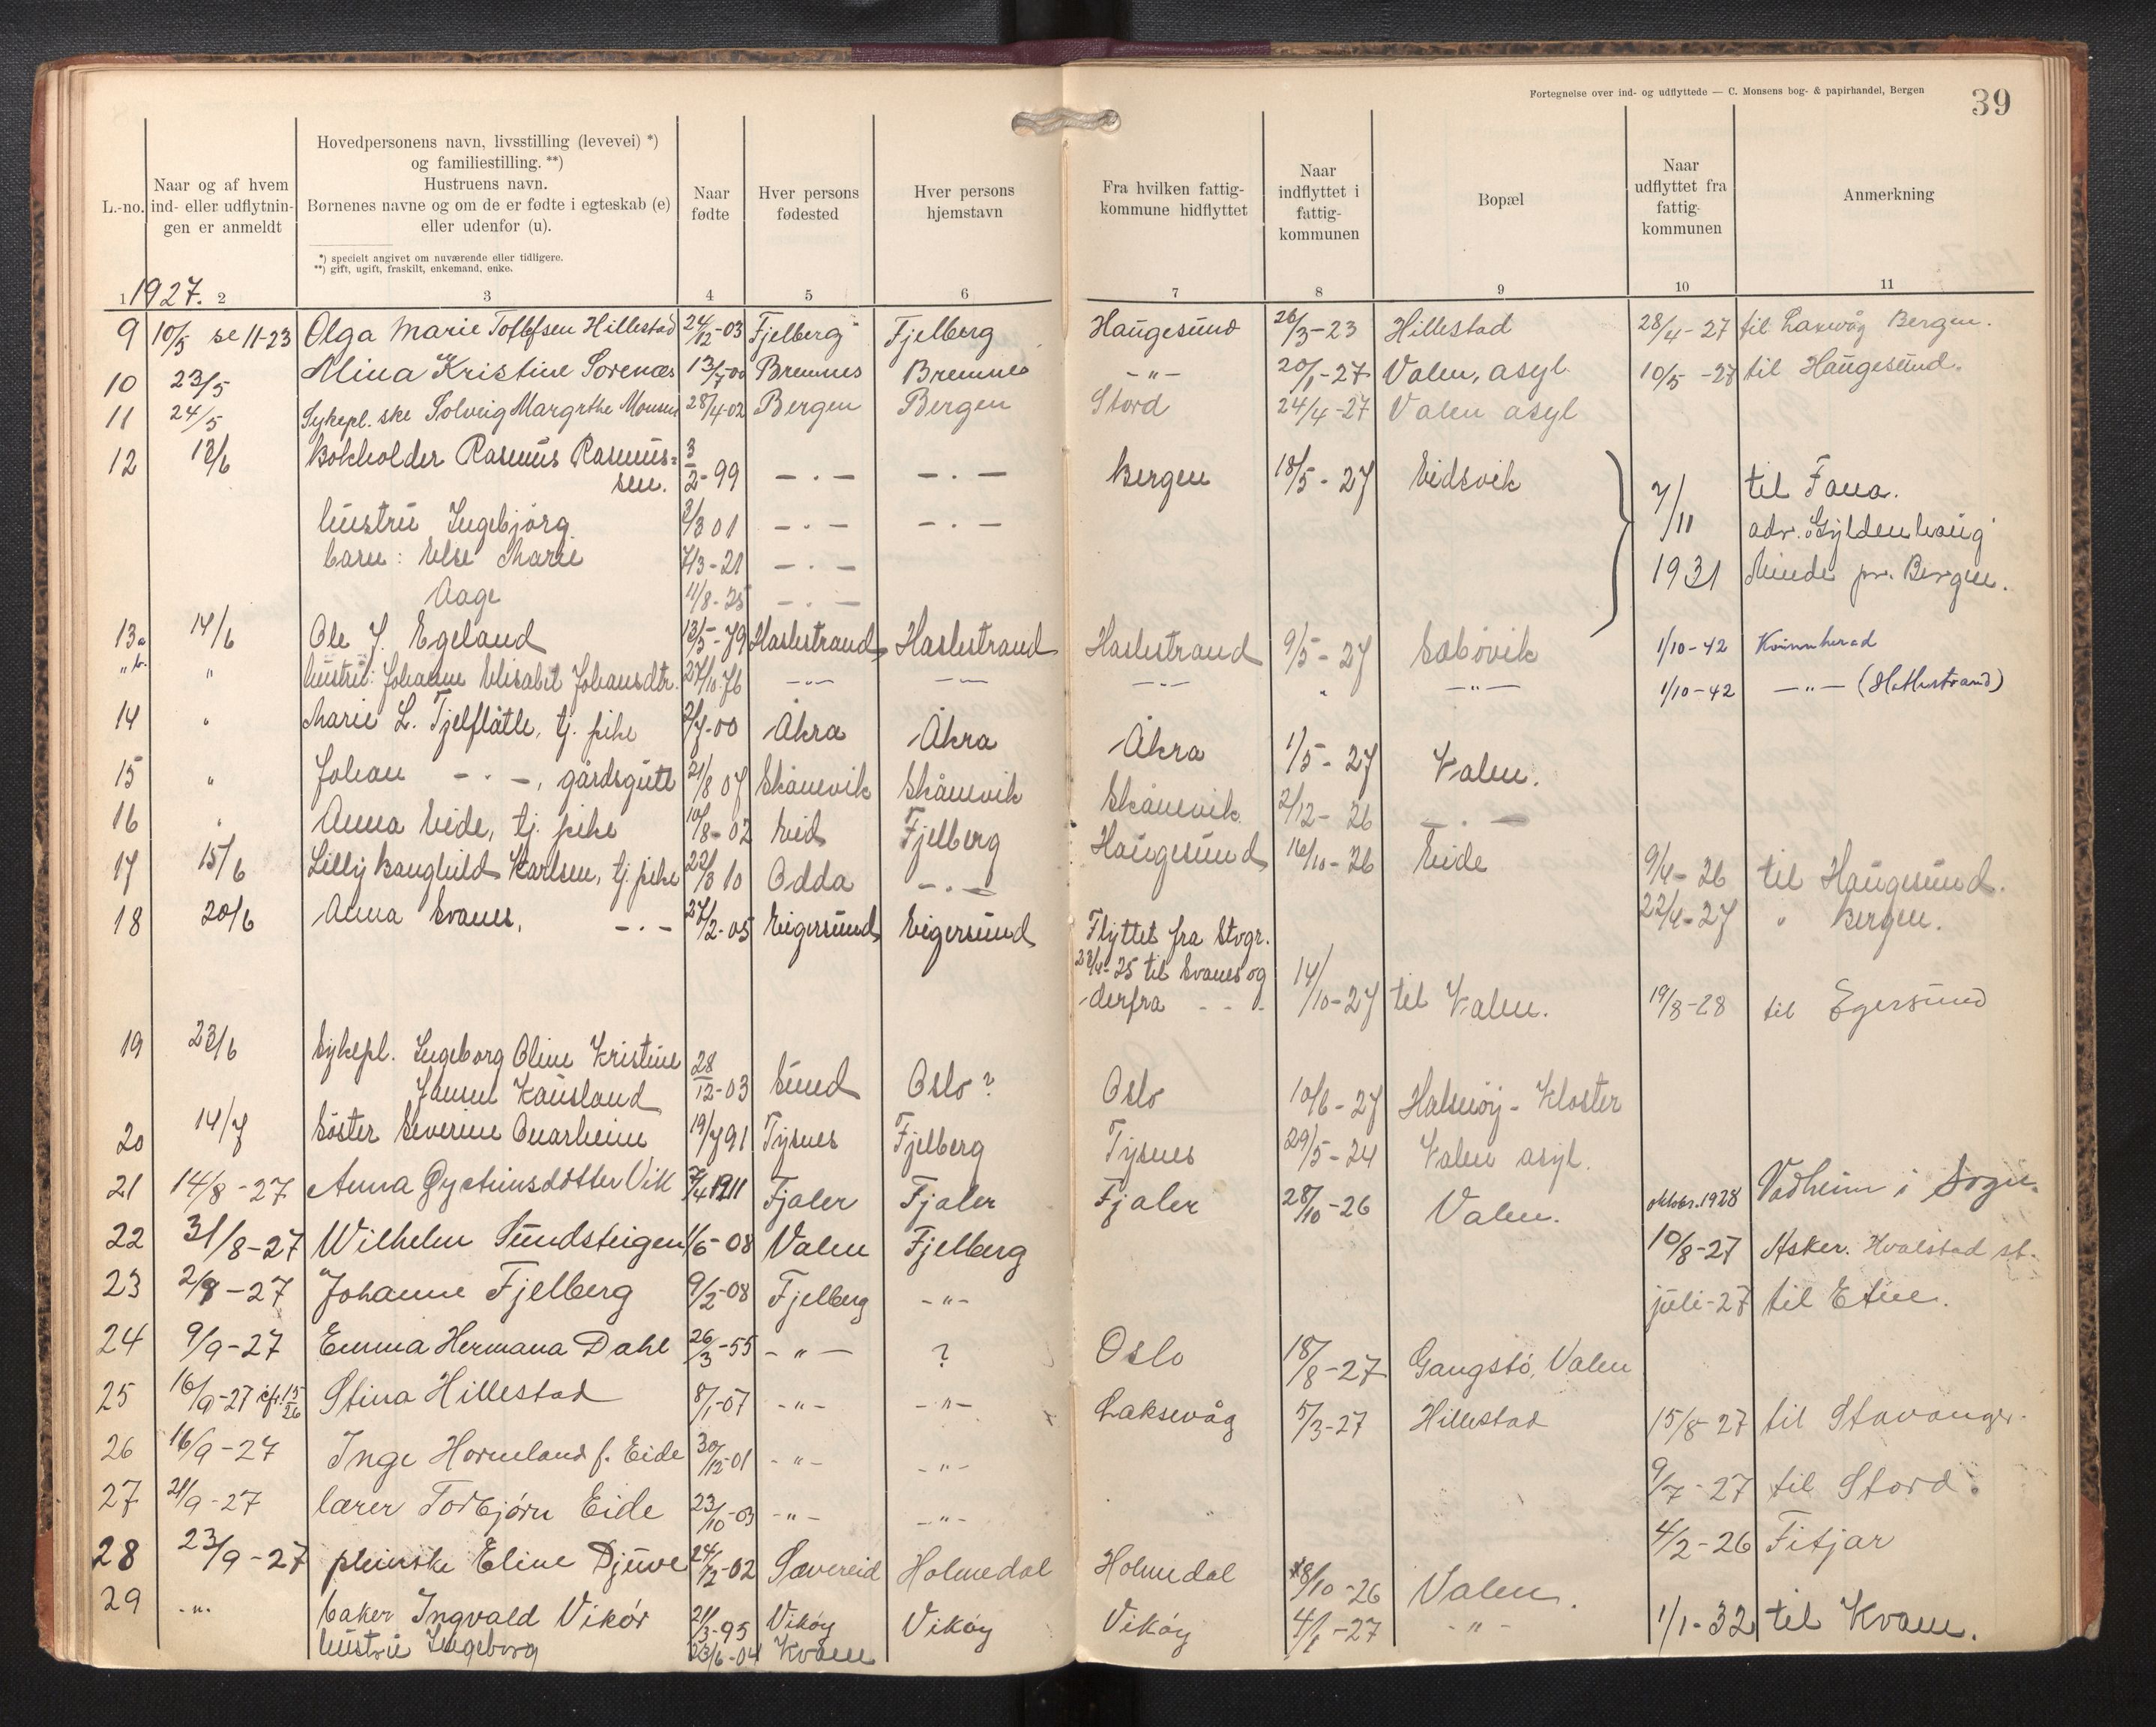 Fortegnelse over ind- og udflyttede — C. Monsens bog- & papirhandel, Bergen
39
L.-no.
Naar og af hvem ind- eller udflytnin- gen er anmeldt
Hovedpersonens navn, livsstilling (levevei) *)
og familiestilling. **)
Hustruens navn.
Børnenes navne og om de er fødte i egteskab (e)
eller udenfor (u).
*) specielt angivet om nuværende eller tidligere.
**) gift, ugift, fraskilt, enkemand, enke.
Naar fødte
Hver persons fødested
Hver persons hjemstavn
Fra hvilken fattig- kommune hidflyttet
Naar indflyttet i fattig- kommunen
Bopæl
Naar udflyttet fra fattig- kommunen
Anmerkning
1 2 3 4 5 6 7 8 9 10 11
1927.
9 10/5 se 11-23 Olga Marie Tollefsen Hillestad 24/12-03 Fjelberg Fjelberg Haugesund 26/3-23 Hillestad 28/4-27 til Laxevåg Bergen.
10 23/5 Alina Kristine Sorenæs 13/7-00 Bremnes Bremnes -"- 20/1-27 Valen, asyl. 10/5-27 til Haugesund.
11 24/5 Sykepl.ske Solveig Margrethe Monsen 28/4-02 Bergen Bergen Stord 24/4-27 Valen asyl
12 13/6 Bokholder Rasmus Rasmus-
sen. 3/2-99 - . - - . - Bergen 18/5-27 Eidsvik 7/11 til Fana.
hustru Ingebjörg 3/8 01 - . - - . - adr. Gyldenhaug
barn: Else Marie 7/3-21 - . - 1931 Minde pr. Bergen.
Aage 11/8-25 - . -
13a 14/6 Ole J. Egeland 13/5-79 Hatlestrand Hatlestrand Hatlestrand 9/5-27 Sæbövik 1/10-42 Kvinnherad
"b. " hustru: Johanne Elisabet Johansdtr. 27/10-76 -"- -"- -"- " -"- 1/10-42 -"- (Hatlestrand)
14 " Marie L. Tjelflåtte, tj. pike 2/7-00 Åkra Åkra Åkra 1/5-27 Valen.
15 " Johan - . -, gårdsgutt 21/8 07 Skånevik Skånevik Skånevik 2/12-26 - . -
16 " Anna Eide, tj. pike 10/8-02 Eid Fjelberg Haugesund 16/10-26 Eide 9/4-26 til Haugesund.
17 15/6 Lilly Baughild Karlsen, tj. pike 22/8 10 Odda - . - 22/4-27 " Bergen.
18 20/6 Anna Svanes, - . - 27/2-05 Eigersund Eigersund Flyttet fra Stvgr.
23/4-25 til Svanes og
derfra - - - 14/10-27 til Valen. 19/8-28 til Egersund
19 23/6 Sykepl. Ingeborg Oline Kristine
Jansen Kausland 28/12-03 Sund Oslo? Oslo 10/6-27 Halsnöy-Kloster
20 14/7 Söster Severine Onarheim 19/7 91 Tysnes Fjelberg Tysnes 29/5-24 Valen asyl.
21 14/8-27 Anna Øysteinsdotter Vik 7/4 1911 Fjaler Fjaler Fjaler 28/10-26 Valen. oktobr. 1928 Vadheim i Sogn.
22 31/8-27 Wilhelm Sundsteigen 1/6-08 Valen Fjelberg 10/8-27 Asker. Hvalstad st.
23 2/9-27 Johanne Fjelberg 9/2-08 Fjelberg -"- juli-27 til Etne.
24 9/9-27 Emma Hermana Dahl 26/3-55 -"- ? Oslo 18/8-27 Gangstö, Valen
25 16/9-27 cfr. 15/26 Stina Hillestad 8/1-07 -"- -"- Laksevåg 5/3-27 Hillestad 15/8-27 til Stavanger.
26 16/9-27 Inge Horneland f. Eide 30/12-01 -"- -"- 9/7-27 til Stord.
27 21/9-27 lærer Torbjørn Eide 23/10-03 -"- -"- 4/2-26 Fitjar
28 23/9-27 pleierske Eline Djuve 24/12-02 Sævereid Holmedal Holmedal 18/10-26 Valen.
29 -"- baker Ingvald Vikör 21/3-95 Viköy Viköy Viköy 4/1-27 -"- 1/1-32 til Kvam.
hustru Ingeborg 23/6-04 Kvam